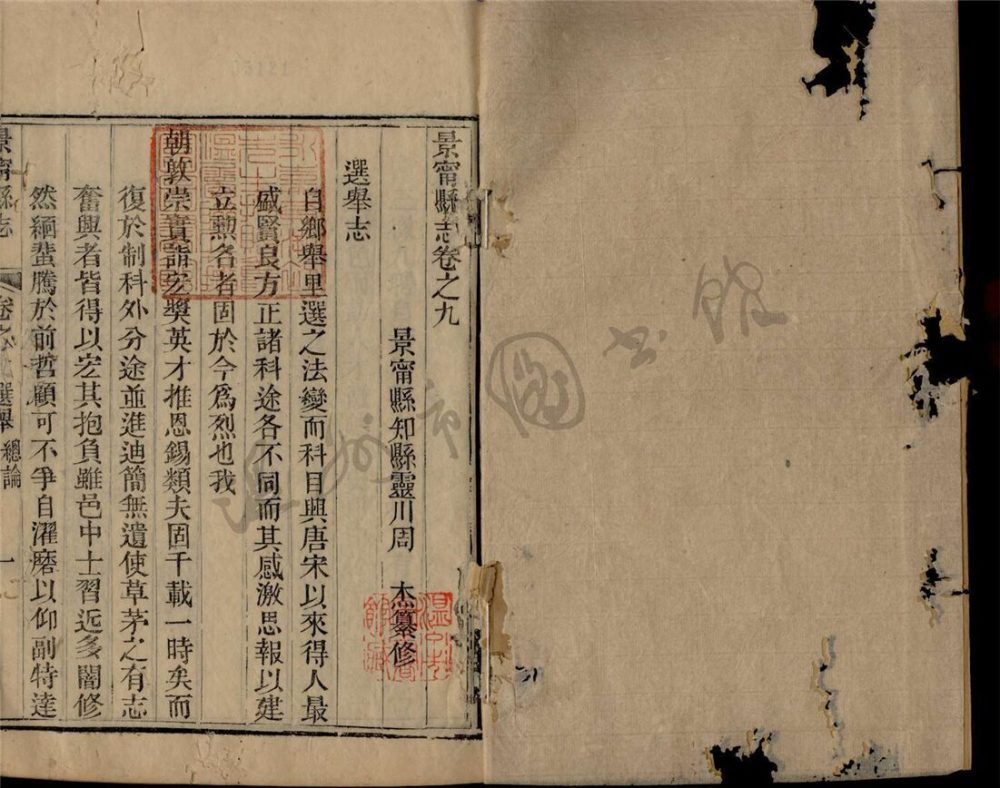 景甯縣志卷之九
景甯縣知縣靈川周 杰纂修
選舉志
自鄉舉里選之法變而科目興唐宋以來得人最
盛賢良方正諸科途各不同而其感激思報以建
立勲名者固於今爲烈也我
朝敦崇實詣宏奬英才推恩錫類夫固千載一時矣而
復於制科外分途並進迪簡無遺使草茅之有志
奮興者皆得以宏其抱負雖邑中士習近多闇修
然緬蜚騰於前哲顧可不爭自濯磨以仰副特達
景甯縣志 卷之九 選舉 總論 一
溫州市圖書館